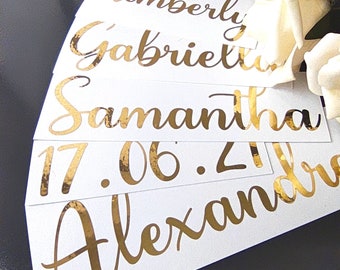 Kimberly
Gabriella
Samantha
17.06.21
Alexandra